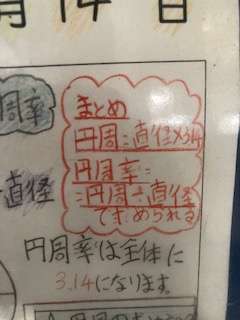 周率
直径
まとめ
円周=直径×3.14
円周率=
=円周÷直径
で求められる
円周率は全体に
3.14になります。